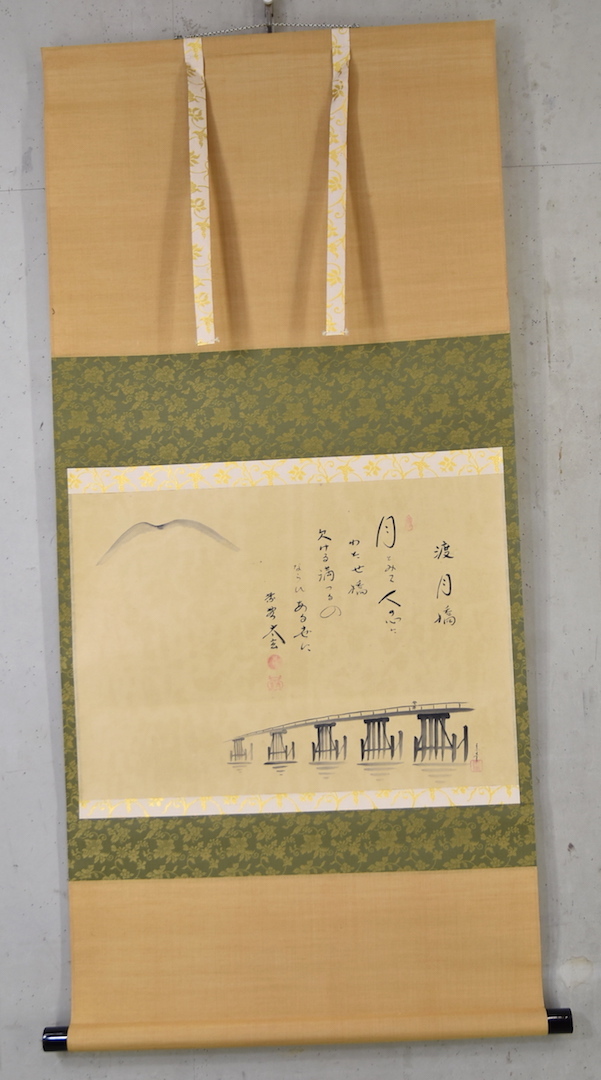 渡月橋
月とみて人の恋に
わたせ橋
欠ける満つるの
ならひある世に